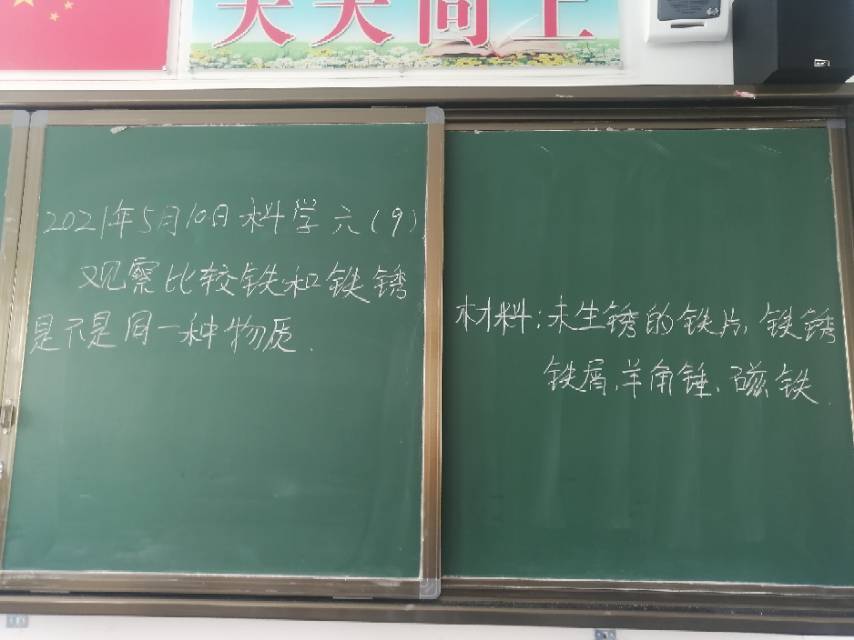 天天向上
2021年5月10日科学六(9)
观察比较铁和铁锈
是不是同一种物质.
材料:未生锈的铁片,铁锈
铁屑、羊角锤、磁铁.